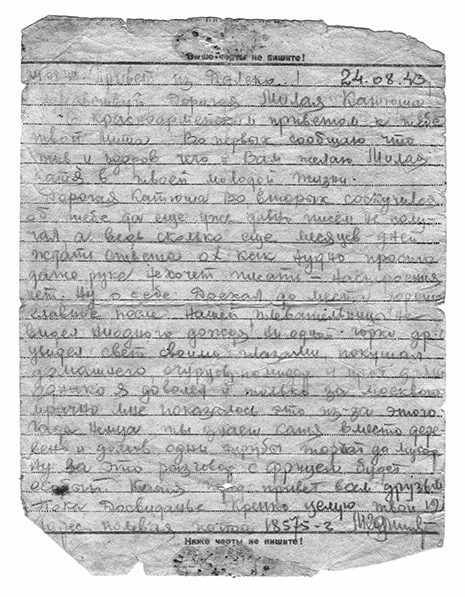 Выше черты не пишите!
Привет из Далека! 24.08.43
Здравствуй Дорогая Милая Катюша
С Красноармейским приветом к тебе
твой Миша Во первых сообщаю что
жив и здоров чего и Вам желаю Милая
Катя в твоей молодой жизни.
Дорогая Катюша Во вторых соскучился
об тебе да еще уже давно писем не полу-
чал а ведь сколько еще месяцев дней
ждать ответа ох как нудно просто
даже рука не хочет писать - настроения
нет. Ну о себе Доехал до места хорошо
после Нашей не
видел ни одного дождя! ни одной
увидел свет своими глазами покушал
домашнего огурцов, помидор и
я доволен и только за москвой
мрачно мне показалось это из-за этого
Гада Немца ты знаешь Катя вместо дере-
вень и домов одни трубы торчат да мусор
Ну за это разговор с фрицем будет
Катя привет всем друзьям
Пока Досвиданье Крепко целую твой
Адрес полевая почта 18575-г
Ниже черты не пишите!